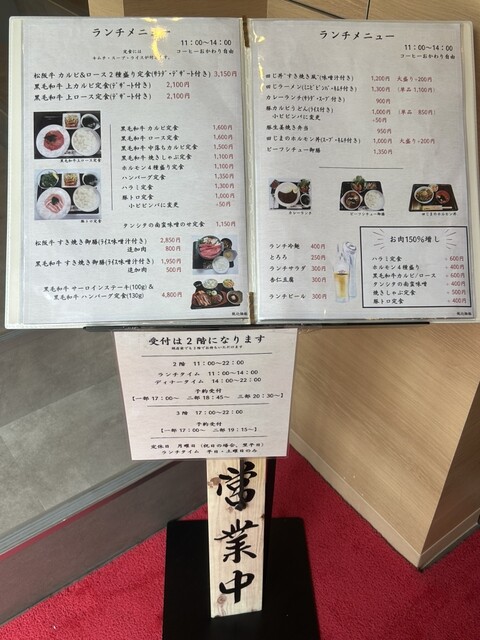 ランチメニュー
11:00~14:00
定食には
キムチ・スープ・ライスが付
コーヒーおかわり自由
松阪牛 カルビ&ロース2種盛り定食(サラダ・デザート付き) 3,150円
黒毛和牛 上カルビ定食(デザート付き) 2,100円
黒毛和牛 上ロース定食(デザート付き) 2,100円
黒毛和牛上ロース定食
豚トロ定食
黒毛和牛 カルビ定食 1,600円
黒毛和牛 ロース定食 1,600円
黒毛和牛 中落ちカルビ定食 1,500円
黒毛和牛 焼きしゃぶ定食 1,100円
ホルモン4種盛り定食 1,100円
ハンバーグ定食 1,350円
ハラミ定食 1,300円
豚トロ定食 1,000円
小ビビンバに変更 +50円
タンシタの南蛮味噌のせ定食 1,150円
松阪牛 すき焼き御膳(ライス味噌汁付き) 2,850円
追加肉 800円
黒毛和牛 すき焼き御膳(ライス味噌汁付き) 1,950円
追加肉 500円
黒毛和牛 サーロインステーキ(100g)&
黒毛和牛 ハンバーグ定食(130g) 4,800円
税込価格
ランチメニュー
11:00~14:00
コーヒーおかわり自由
田じ丼"すき焼き風"(味噌汁付き) 1,200円 大盛り+200円
田じラーメン(ミニビビンバ・キムチ付き) 1,300円 (単品 1,100円)
カレーランチ(サラダ・スープ付き) 900円
豚カルビうどん(ライス付き) 1,000円 (単品 850円)
小ビビンバに変更 +50円
豚生姜焼き弁当 950円
田じまのホルモン丼(スープ・キムチ付き) 1,000円 大盛り+200円
ビーフシチュー御膳 1,350円
カレーランチ
ビーフシチュー御膳
田じまのホルモン丼
ランチ冷麺 400円
とろろ 250円
ランチサラダ 300円
杏仁豆腐 300円
ランチビール 300円
お肉150%増し
ハラミ定食 +600円
ホルモン4種盛り +400円
黒毛和牛カルビ/ロース +600円
タンシタの南蛮味噌 +400円
焼きしゃぶ定食 +500円
豚トロ定食 +400円
税込価格
受付は2階になります
2階 11:00~22:00
ランチタイム 11:00~14:00
ディナータイム 14:00~22:00
予約受付
【一部 17:00~ 二部 18:45~ 三部 20:30~】
3階 17:00~22:00
予約受付
【一部 17:00~ 二部 19:15~】
定休日 月曜日(祝日の場合、翌平日)
ランチタイム 平日・土曜日のみ
営業中